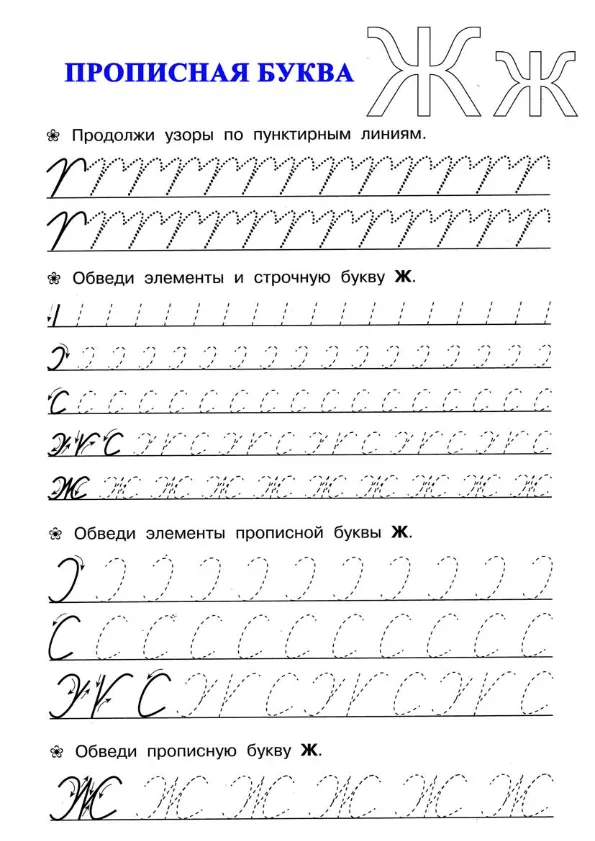 ПРОПИСНАЯ БУКВА Ж ж
Продолжи узоры по пунктирным линиям.
Обведи элементы и строчную букву Ж.
ж ж ж ж ж ж ж ж ж ж
Обведи элементы прописной буквы Ж.
Обведи прописную букву Ж.
Ж Ж Ж Ж Ж Ж